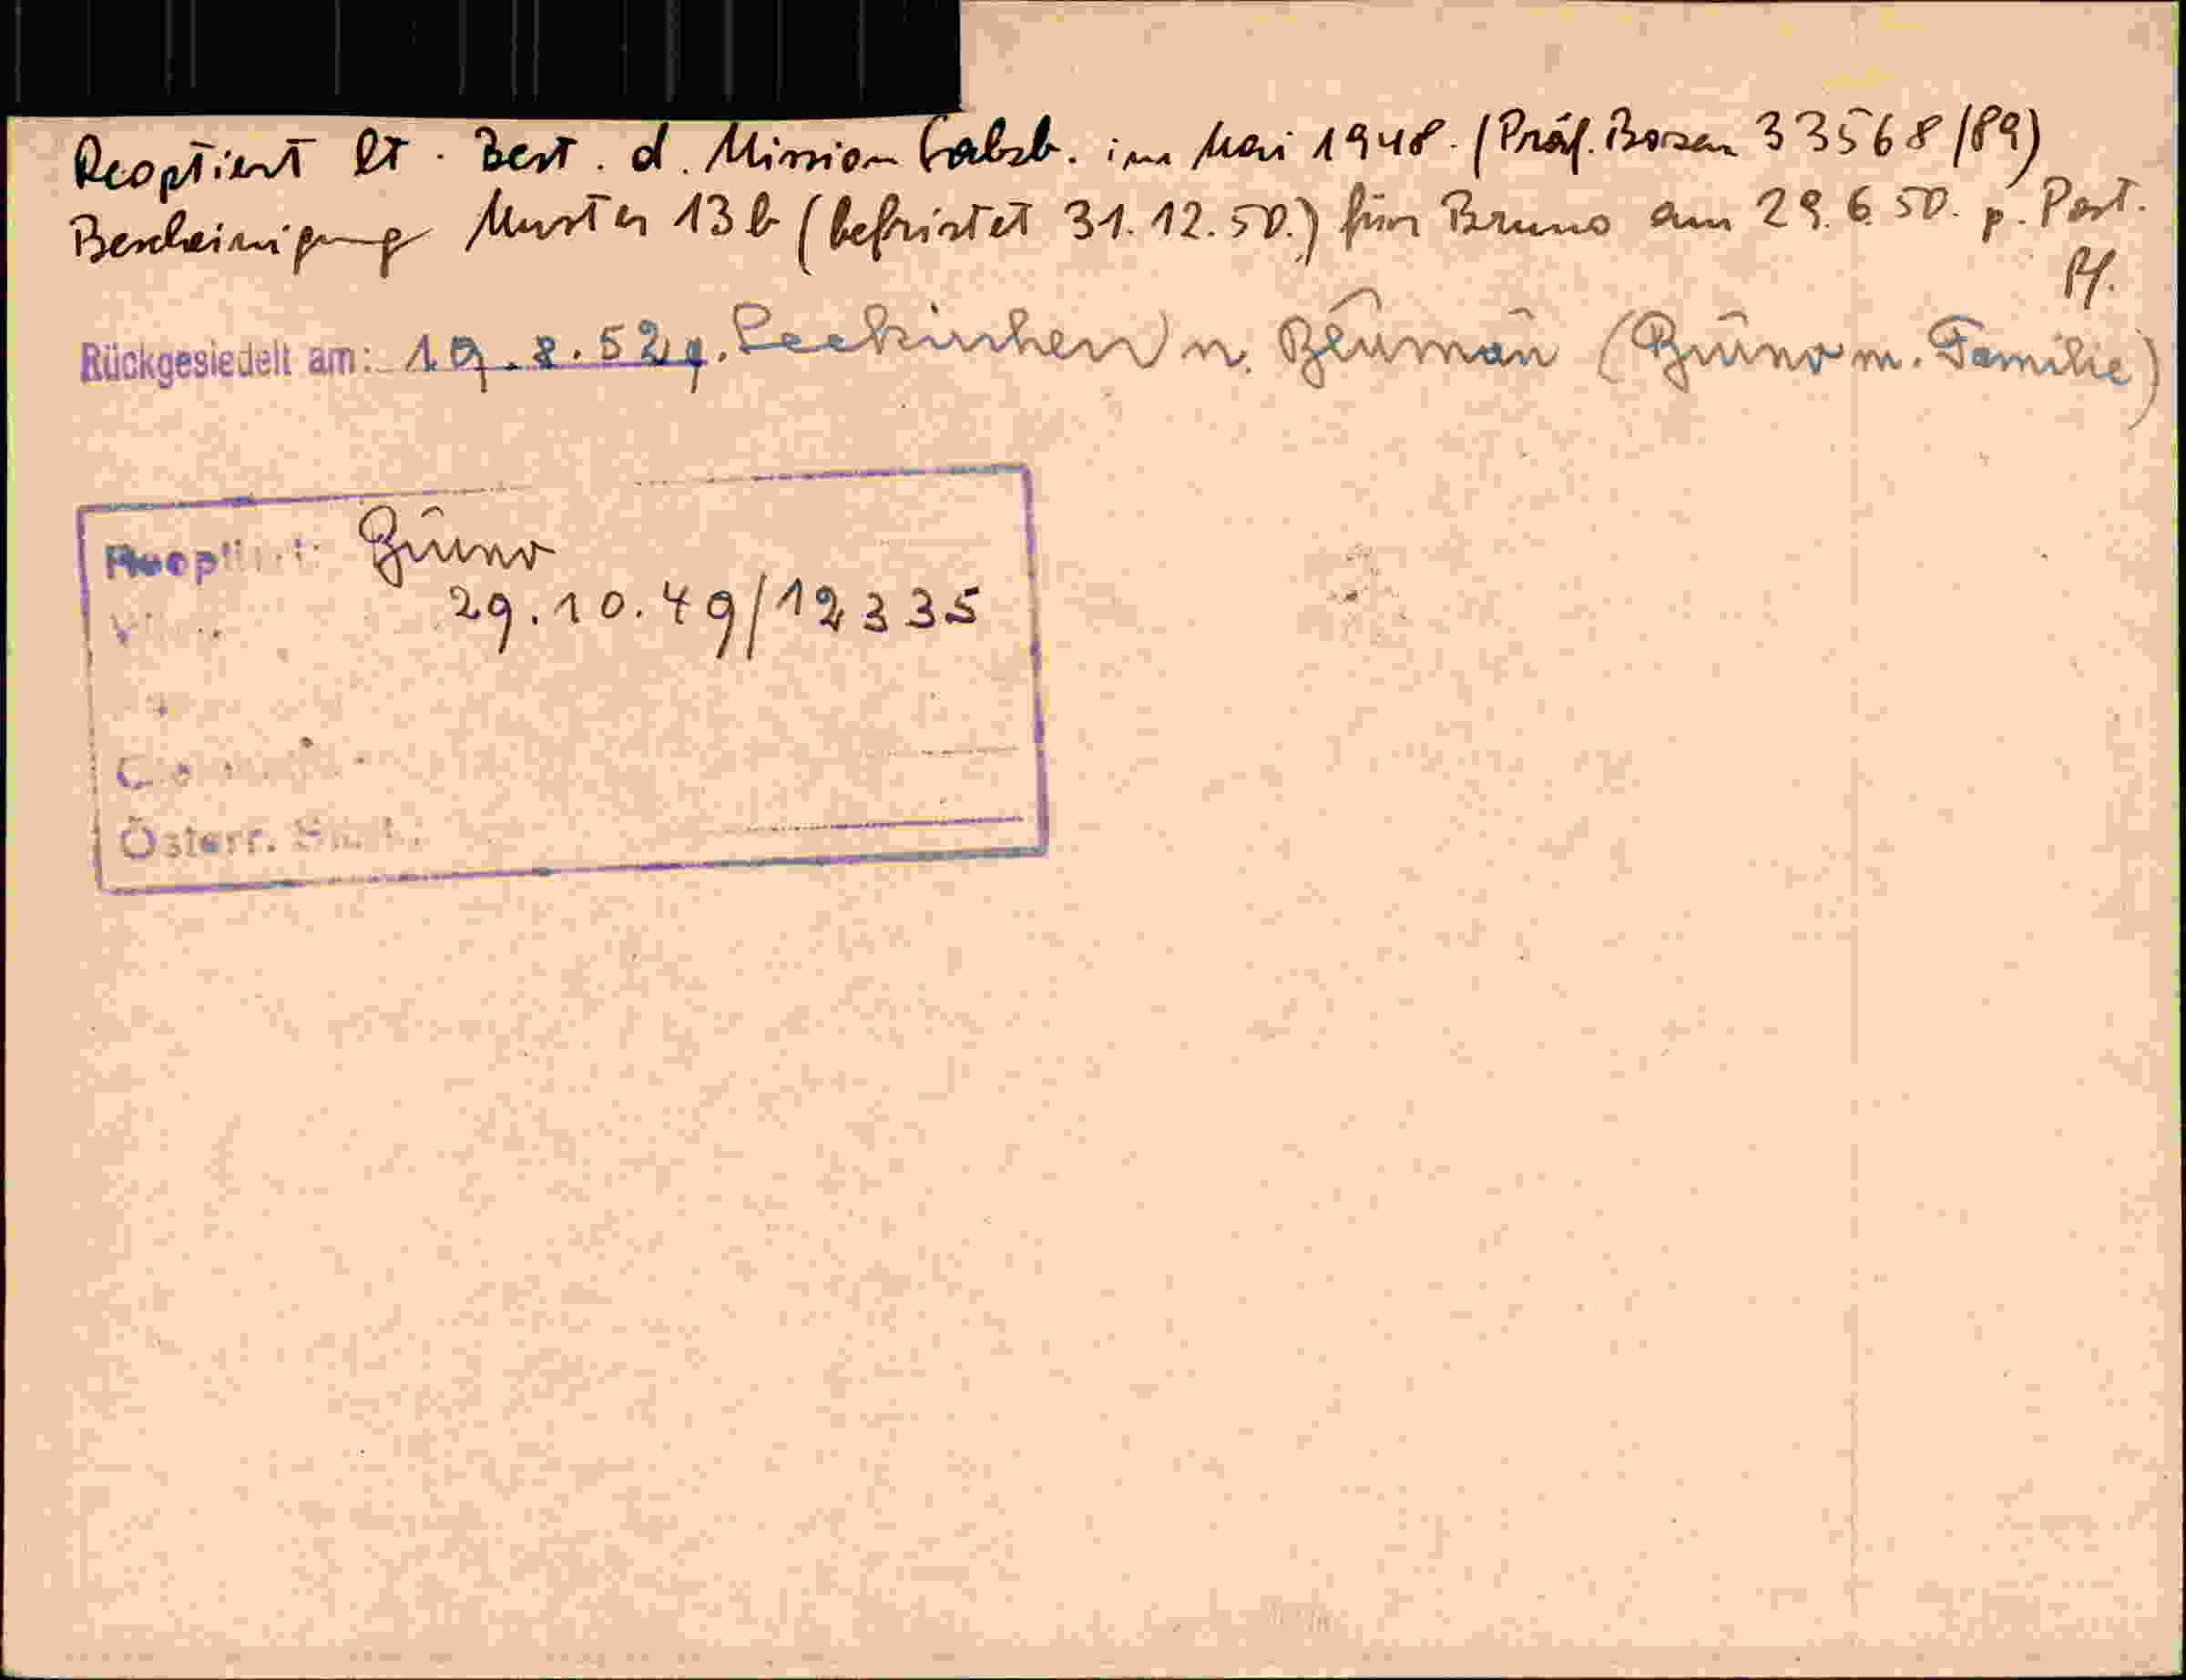 Reoptiert lt. Best. d. Mission Salzb. im Mai 1948. (Präf. Bozen 33568/89)
Bescheinigung Muster 13b (befristet 31.12.50.) für Bruno am 29.6.50. p. Post.
Rückgesiedelt am: 19.8.52 v. Seekirchen n. Blumau (Bruno m. Familie)
Reoptiert: Bruno
29.10.49/12335
Österr.